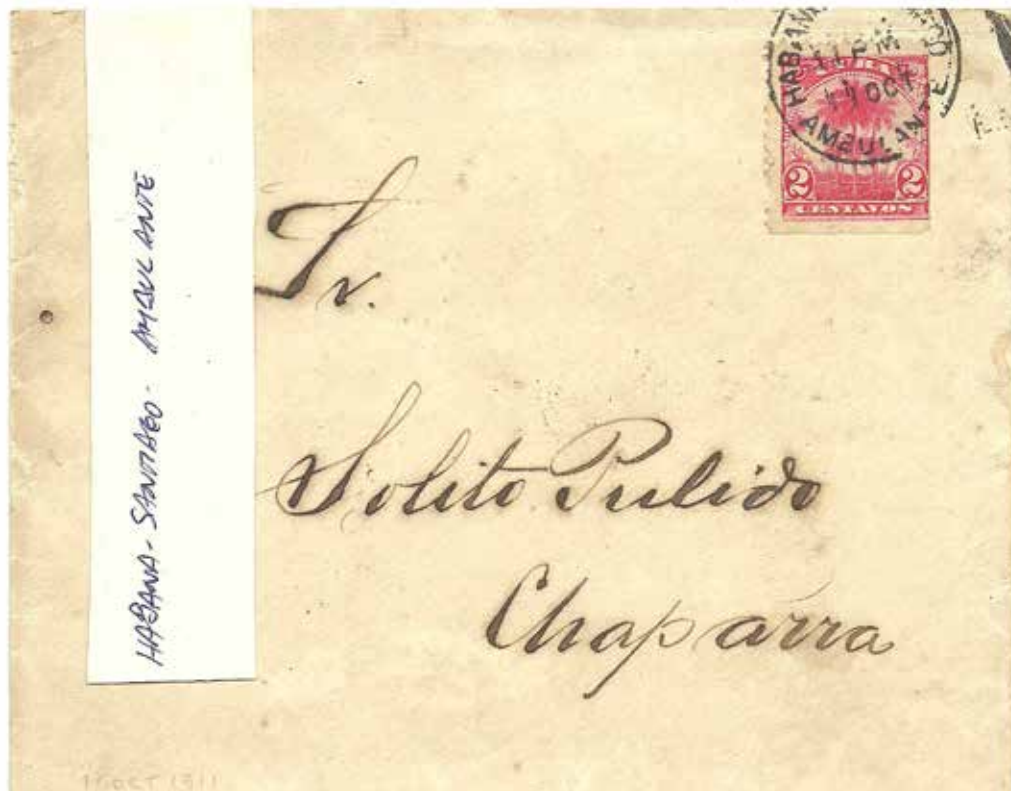 HABANA - SANTIAGO - AMBULANTE
11 PM
11 OCT
AMBULANTE
CUBA
2 2
CENTAVOS
Sr.
Solito Pulido
Chaparra
1 OCT 1911